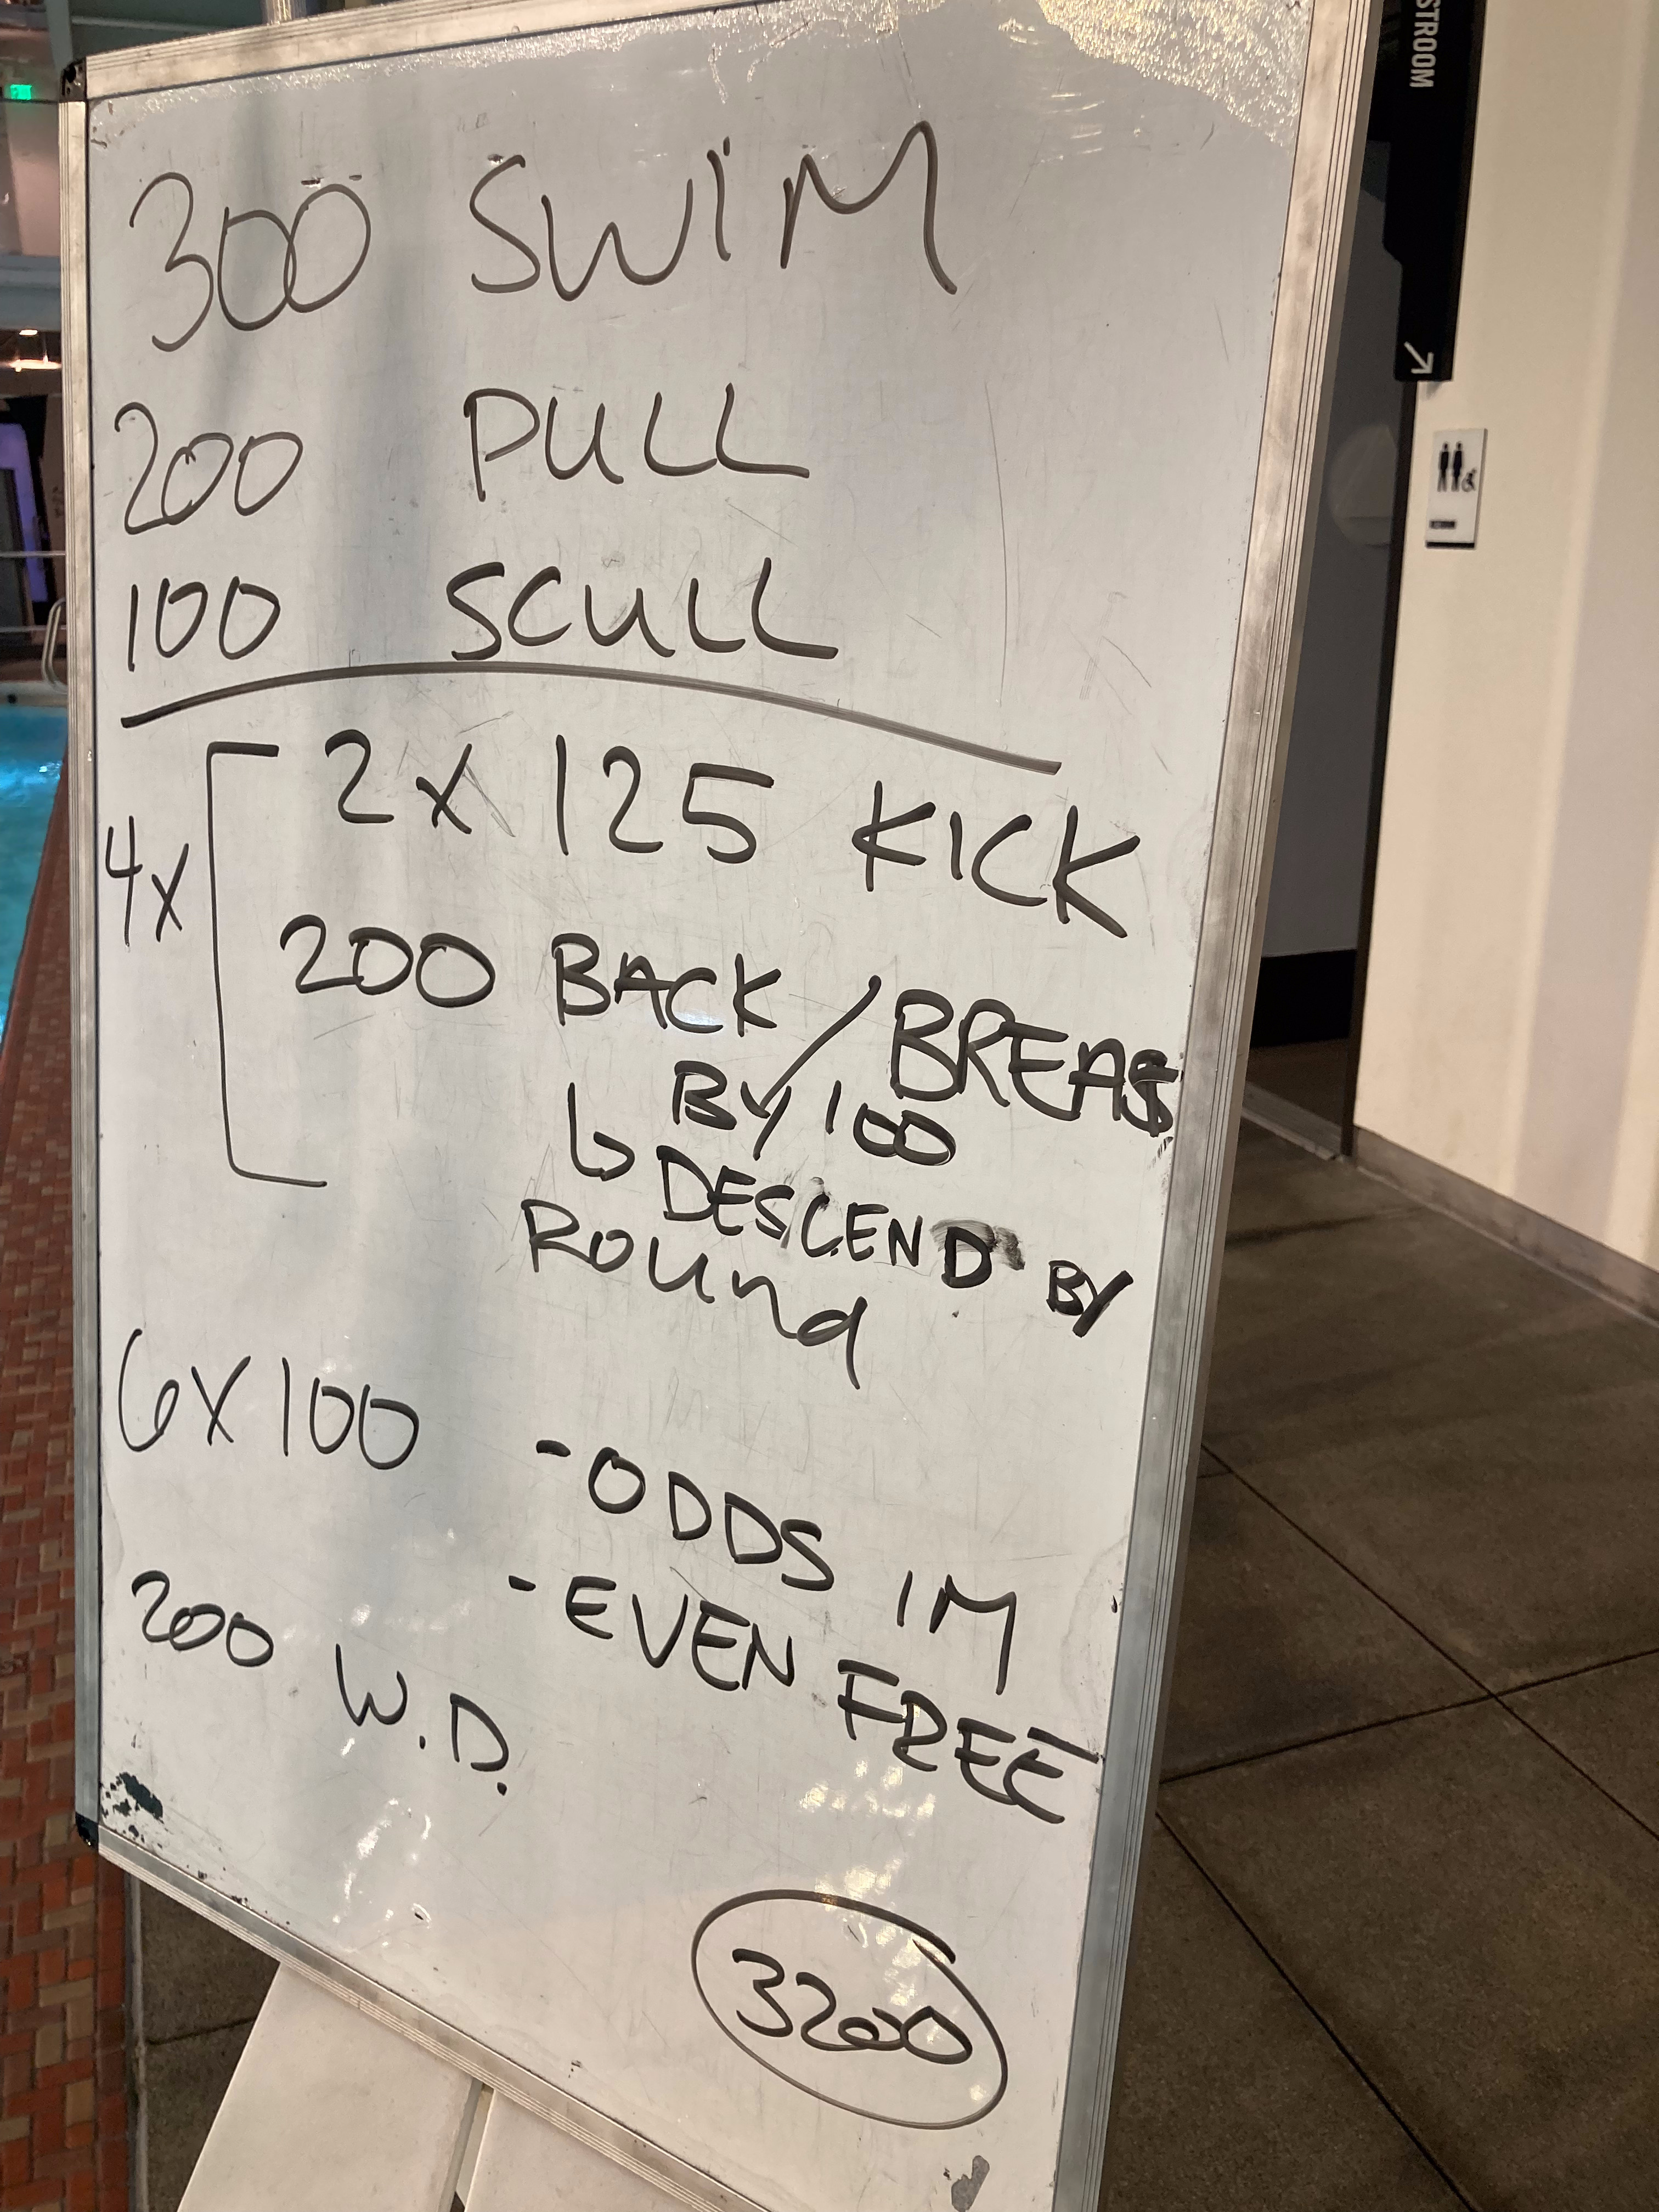 STROOM
300 SWIM
200 PULL
100 SCULL
4x
2 x 125 KICK
200 BACK / BREAS
BY 100
↳ DESCEND BY
ROUND
6x100 - ODDS IM
- EVEN FREE
200 W.D.
3200